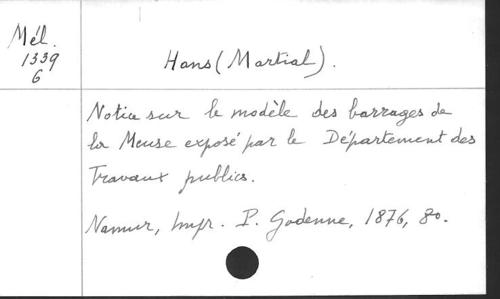 Mél.
1339
6
Hans (Martial).
Notice sur le modèle des barrages de
la Meuse exposé par le Département des
Travaux publics.
Namur, Impr. P. Godenne, 1876, 8o.